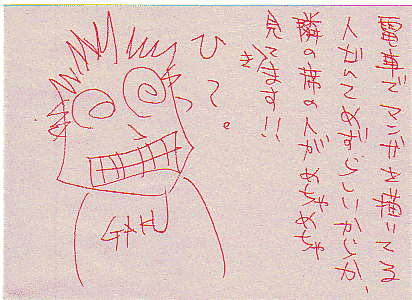 電車でマンガを描いてる
人がいてめずらしいからか、
隣の席の人がめちゃめちゃ
見てきます!!
ひ〜。